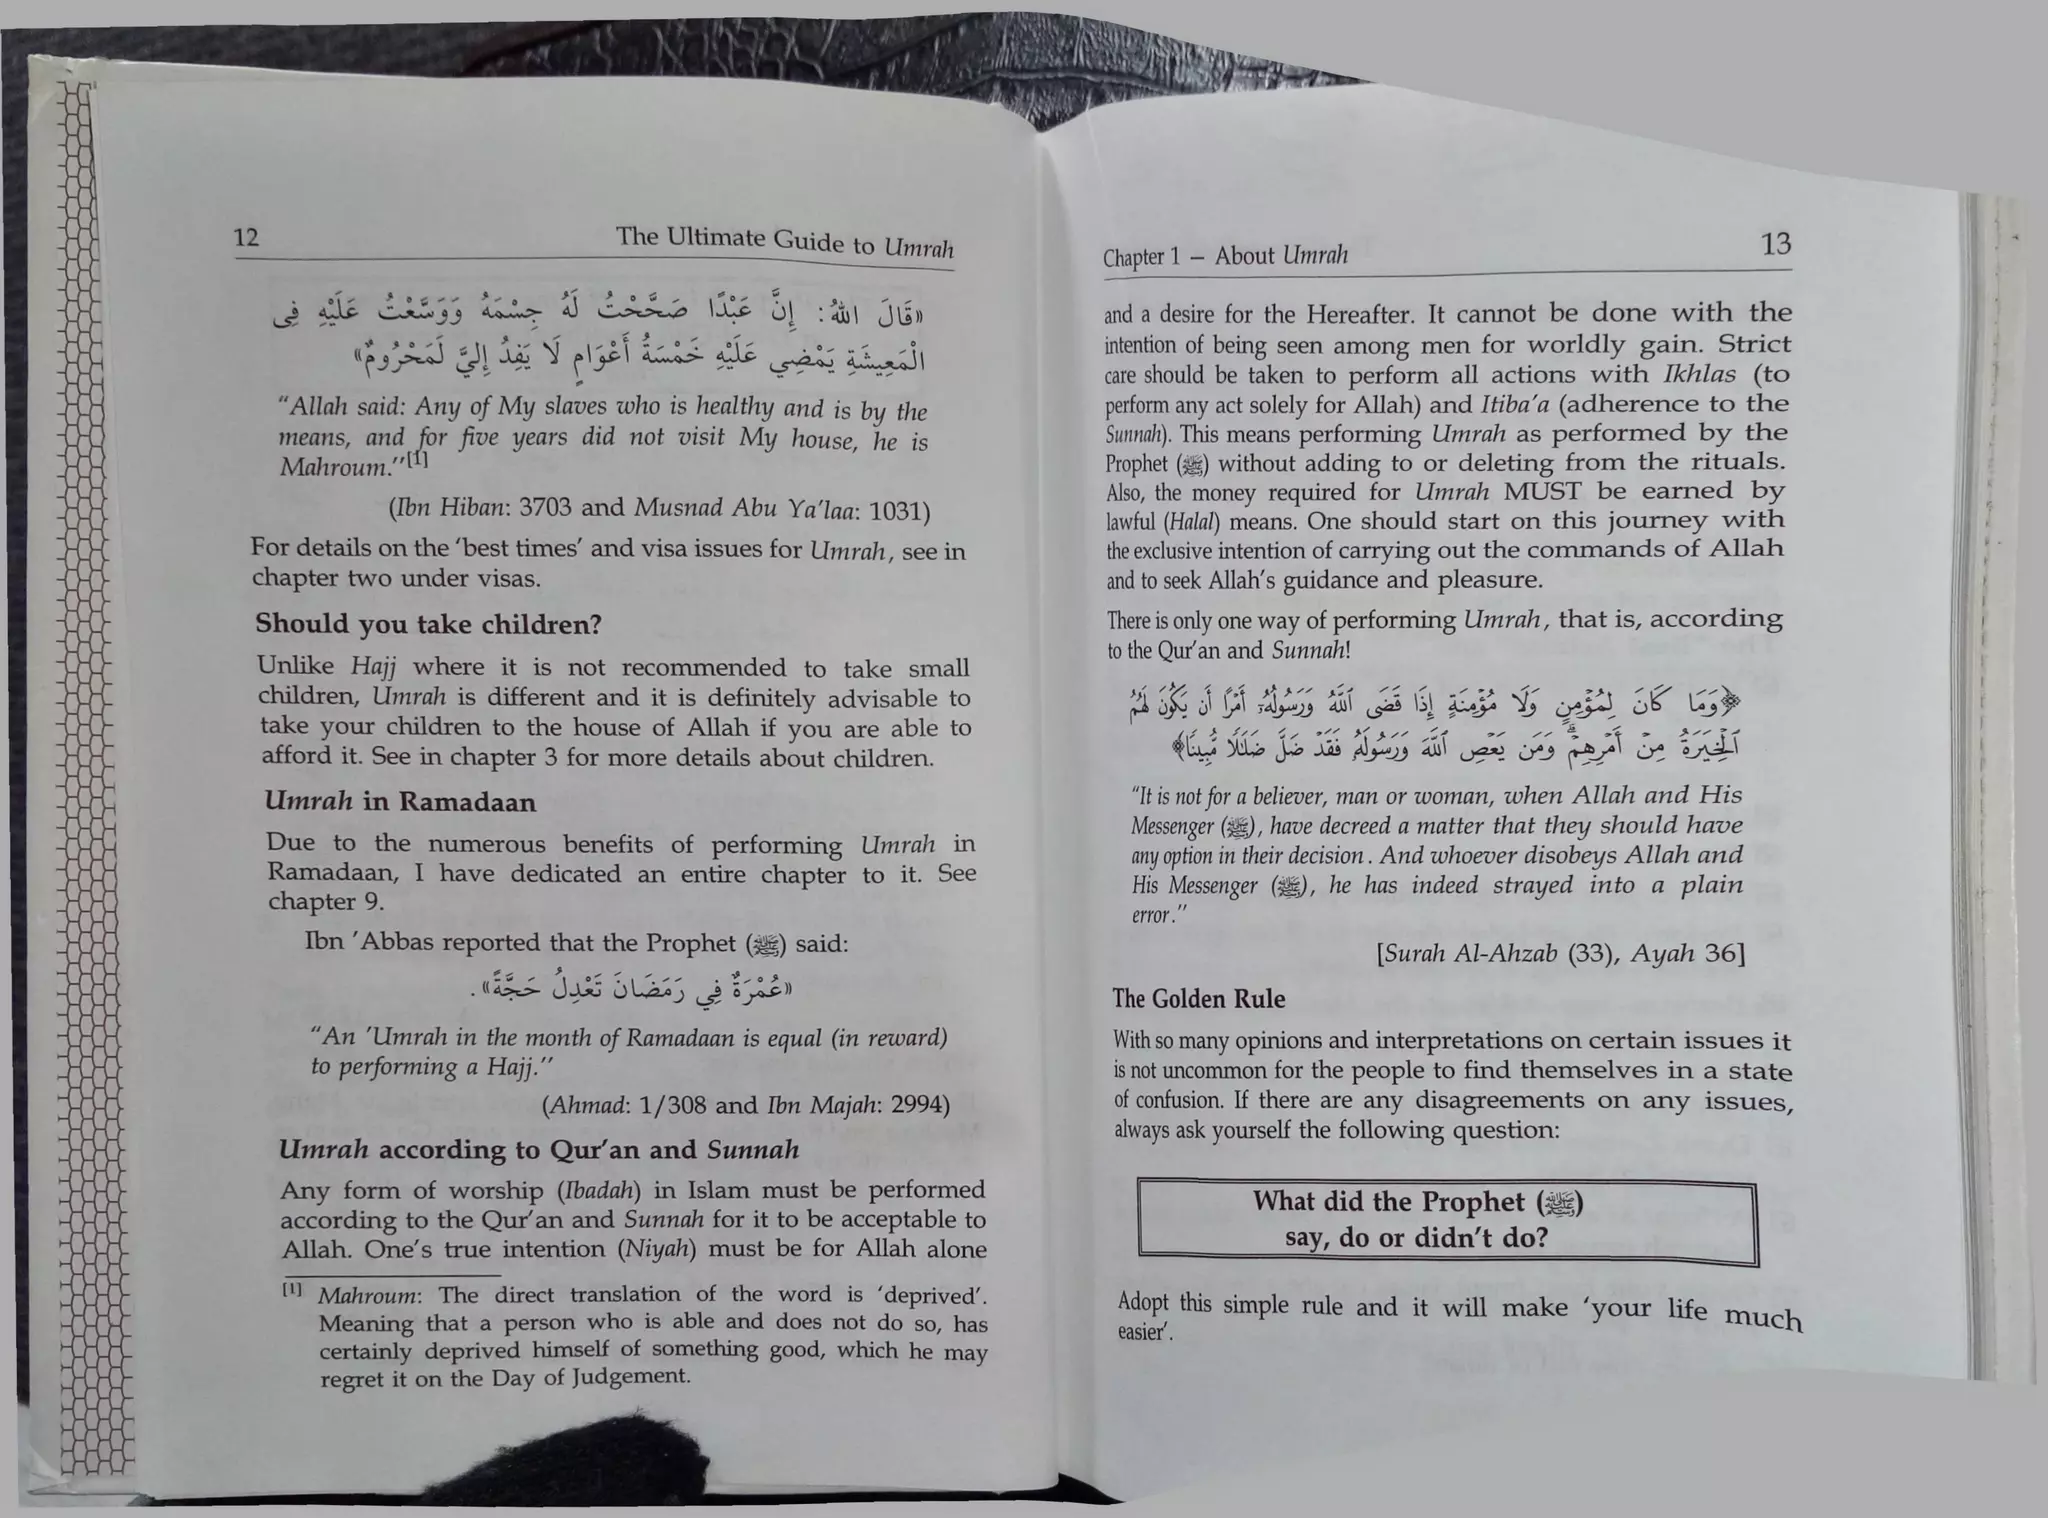 12 The Ultimate Guide to Umrah
«قَالَ اللهُ: إِنَّ عَبْدًا صَحَّحْتُ لَهُ جِسْمَهُ وَوَسَّعْتُ عَلَيْهِ فِي
الْمَعِيشَةِ يَمْضِي عَلَيْهِ خَمْسَةُ أَعْوَامٍ لَا يَفِدُ إِلَيَّ لَمَحْرُومٌ»
"Allah said: Any of My slaves who is healthy and is by the
means, and for five years did not visit My house, he is
Mahroum."[1]
(Ibn Hiban: 3703 and Musnad Abu Ya'laa: 1031)
For details on the 'best times' and visa issues for Umrah, see in
chapter two under visas.
Should you take children?
Unlike Hajj where it is not recommended to take small
children, Umrah is different and it is definitely advisable to
take your children to the house of Allah if you are able to
afford it. See in chapter 3 for more details about children.
Umrah in Ramadaan
Due to the numerous benefits of performing Umrah in
Ramadaan, I have dedicated an entire chapter to it. See
chapter 9.
Ibn 'Abbas reported that the Prophet (ﷺ) said:
«عُمْرَةٌ فِي رَمَضَانَ تَعْدِلُ حَجَّةً».
"An 'Umrah in the month of Ramadaan is equal (in reward)
to performing a Hajj."
(Ahmad: 1/308 and Ibn Majah: 2994)
Umrah according to Qur'an and Sunnah
Any form of worship (Ibadah) in Islam must be performed
according to the Qur'an and Sunnah for it to be acceptable to
Allah. One's true intention (Niyah) must be for Allah alone
[1] Mahroum: The direct translation of the word is 'deprived'.
Meaning that a person who is able and does not do so, has
certainly deprived himself of something good, which he may
regret it on the Day of Judgement.
Chapter 1 – About Umrah 13
and a desire for the Hereafter. It cannot be done with the
intention of being seen among men for worldly gain. Strict
care should be taken to perform all actions with Ikhlas (to
perform any act solely for Allah) and Itiba'a (adherence to the
Sunnah). This means performing Umrah as performed by the
Prophet (ﷺ) without adding to or deleting from the rituals.
Also, the money required for Umrah MUST be earned by
lawful (Halal) means. One should start on this journey with
the exclusive intention of carrying out the commands of Allah
and to seek Allah's guidance and pleasure.
There is only one way of performing Umrah, that is, according
to the Qur'an and Sunnah!
﴿وَمَا كَانَ لِمُؤْمِنٍ وَلَا مُؤْمِنَةٍ إِذَا قَضَى ٱللَّهُ وَرَسُولُهُۥٓ أَمْرًا أَن يَكُونَ لَهُمُ
ٱلْخِيَرَةُ مِنْ أَمْرِهِمْ ۗ وَمَن يَعْصِ ٱللَّهَ وَرَسُولَهُۥ فَقَدْ ضَلَّ ضَلَٰلًا مُّبِينًا﴾
"It is not for a believer, man or woman, when Allah and His
Messenger (ﷺ), have decreed a matter that they should have
any option in their decision. And whoever disobeys Allah and
His Messenger (ﷺ), he has indeed strayed into a plain
error."
[Surah Al-Ahzab (33), Ayah 36]
The Golden Rule
With so many opinions and interpretations on certain issues it
is not uncommon for the people to find themselves in a state
of confusion. If there are any disagreements on any issues,
always ask yourself the following question:
What did the Prophet (ﷺ)
say, do or didn't do?
Adopt this simple rule and it will make 'your life much
easier'.